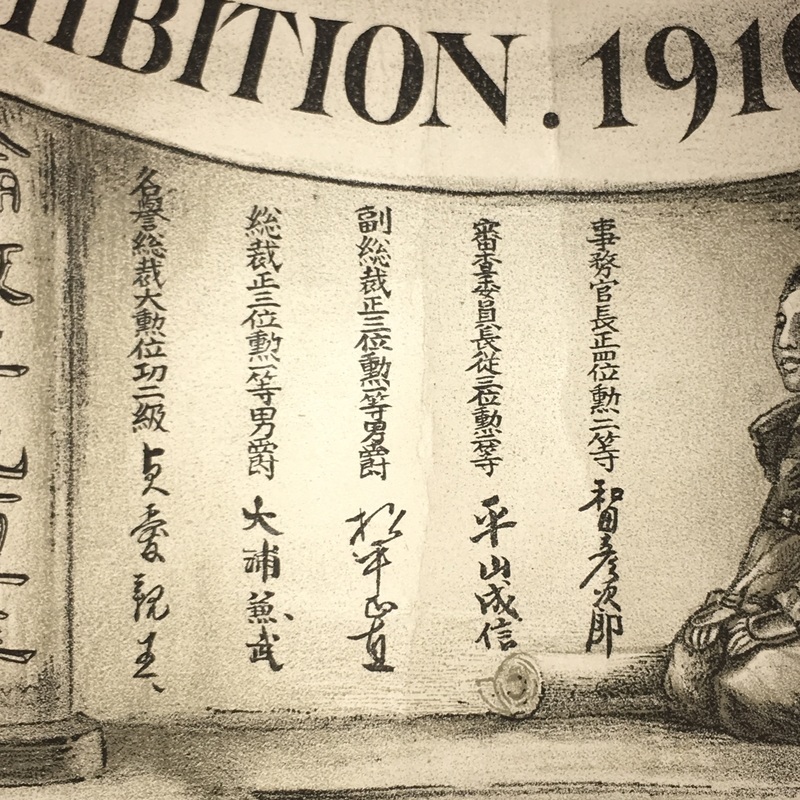 HIBITION. 1910
名譽総裁大勲位功二級 貞愛親王
総裁正三位勲一等男爵 大浦兼武
副総裁正三位勲一等男爵 松平正直
審査委員長従三位勲二等 平山成信
事務官長正四位勲二等 和田彦次郎